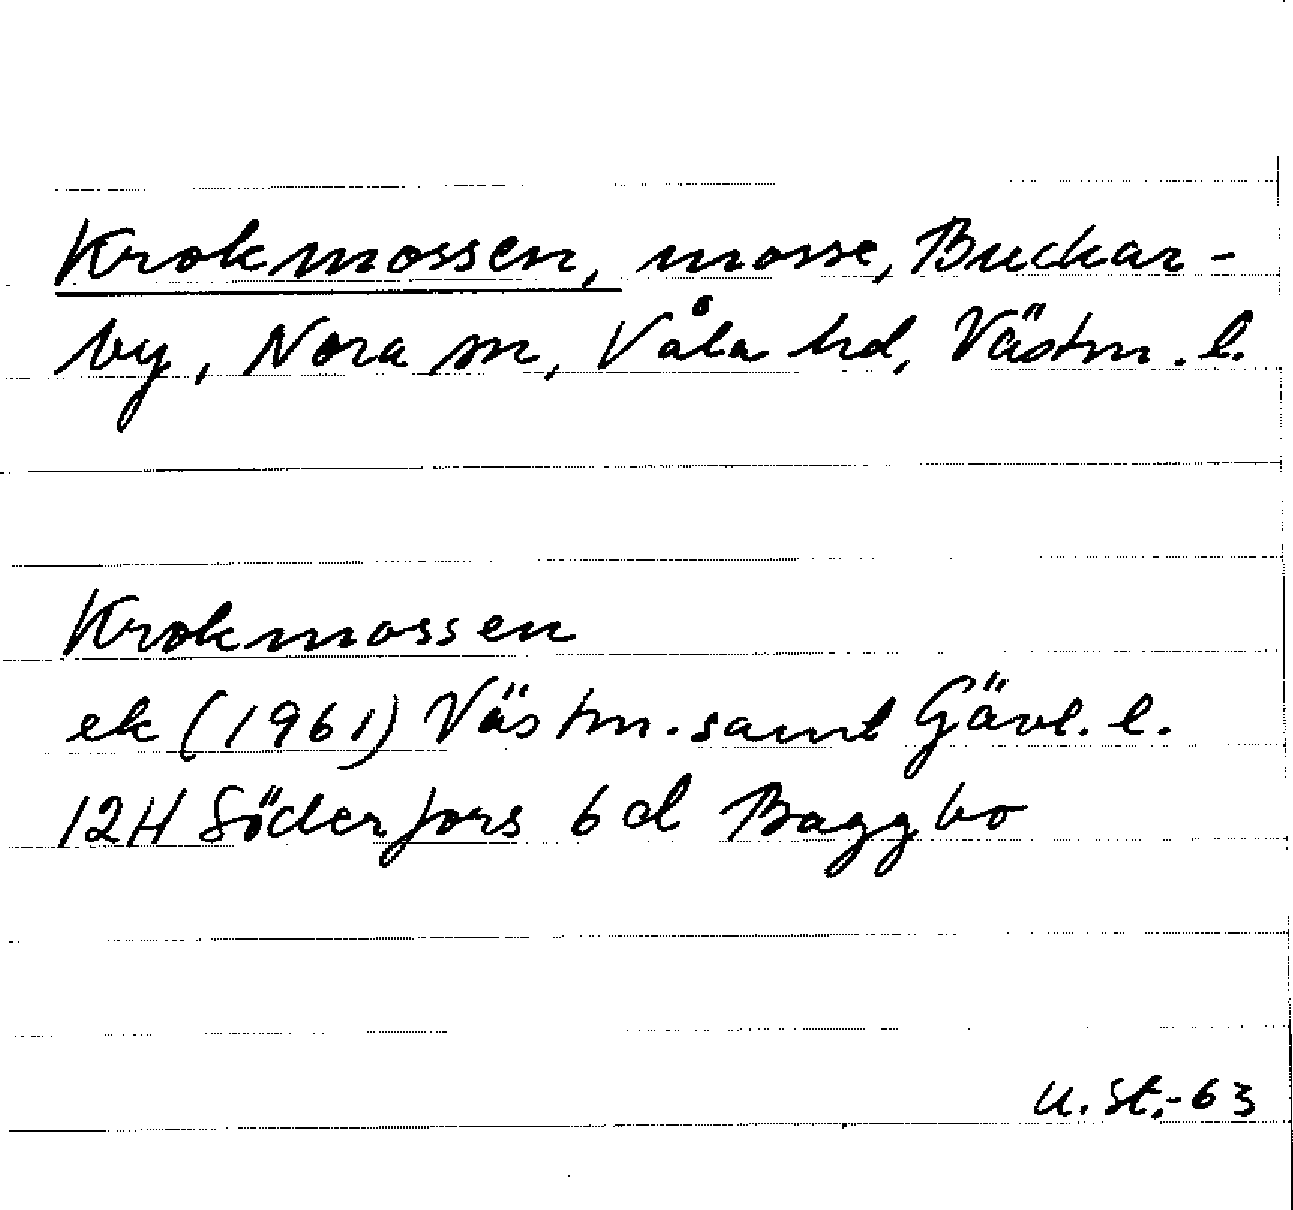 Krokmossen, mosse, Buckar-
by, Nora sn, Våla hd, Västm. l.
Krokmossen
ek (1961) Västm. samt Gävl. l.
12H Söderfors 6d Baggbo
U. St. -63